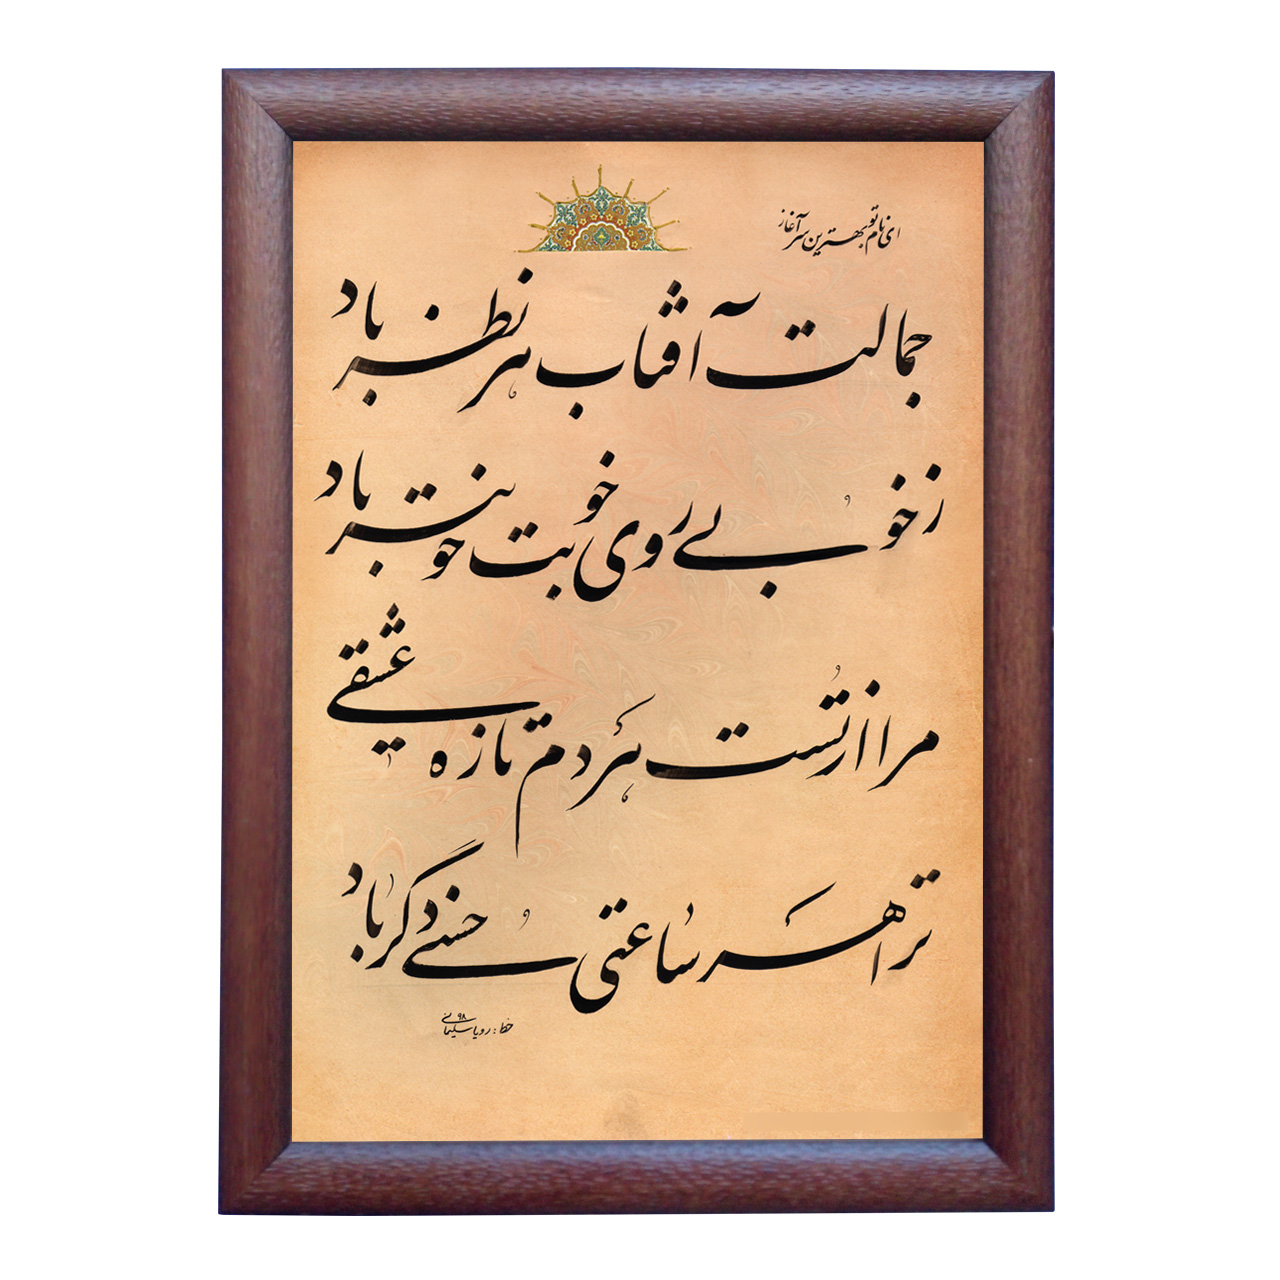 ای نام تو بهترین سرآغاز
جمالت آفتاب هر نظر باد
ز خوبی روی خوبت خوبتر باد
مرا از تست هر دم تازه عشقی
ترا هر ساعتی حسنی دگر باد
خط : رویا سلیمانی ۹۸